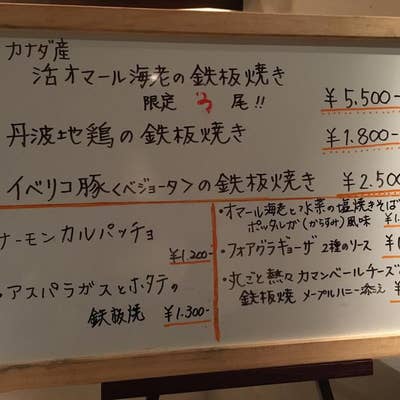 カナダ産
活オマール海老の鉄板焼き
限定 尾!!
¥5,500-
丹波地鶏の鉄板焼き
¥1,800-
イベリコ豚<ベジョータ>の鉄板焼き
¥2,500
サーモンカルパッチョ
¥1,200-
・アスパラガスとホタテの
鉄板焼 ¥1,300-
・オマール海老と水菜の塩焼きそば
ボッタルガ(からすみ)風味 ¥1,
・フォアグラギョーザ 2種のソース
・丸ごと熱々カマンベールチーズ
鉄板焼 メープルハニー添え ¥